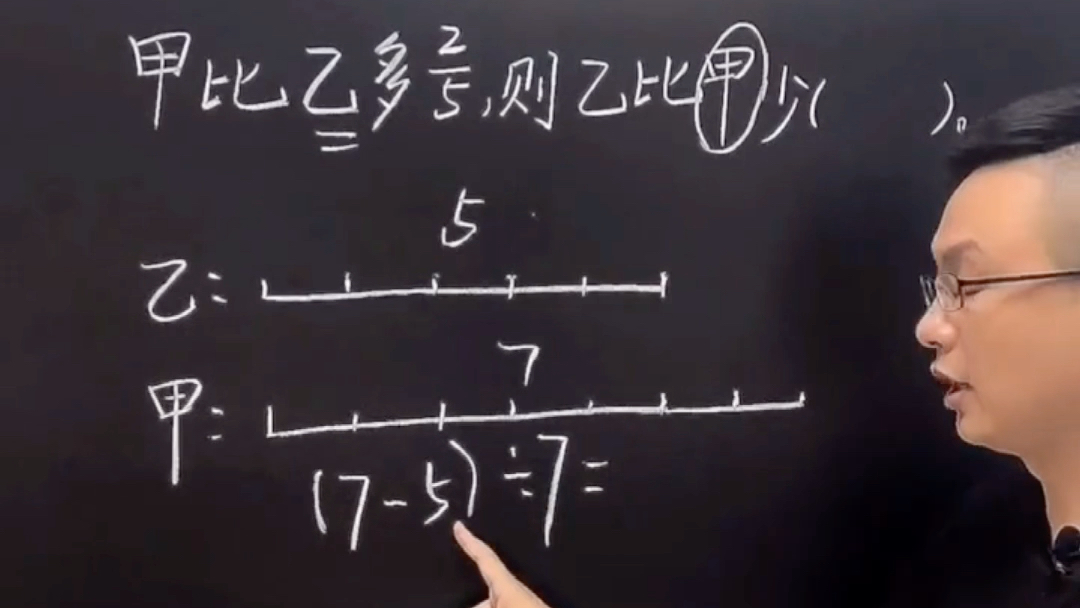 甲比乙多2/5,则乙比甲少(    )。
5
乙:
7
甲:
(7-5)÷7=